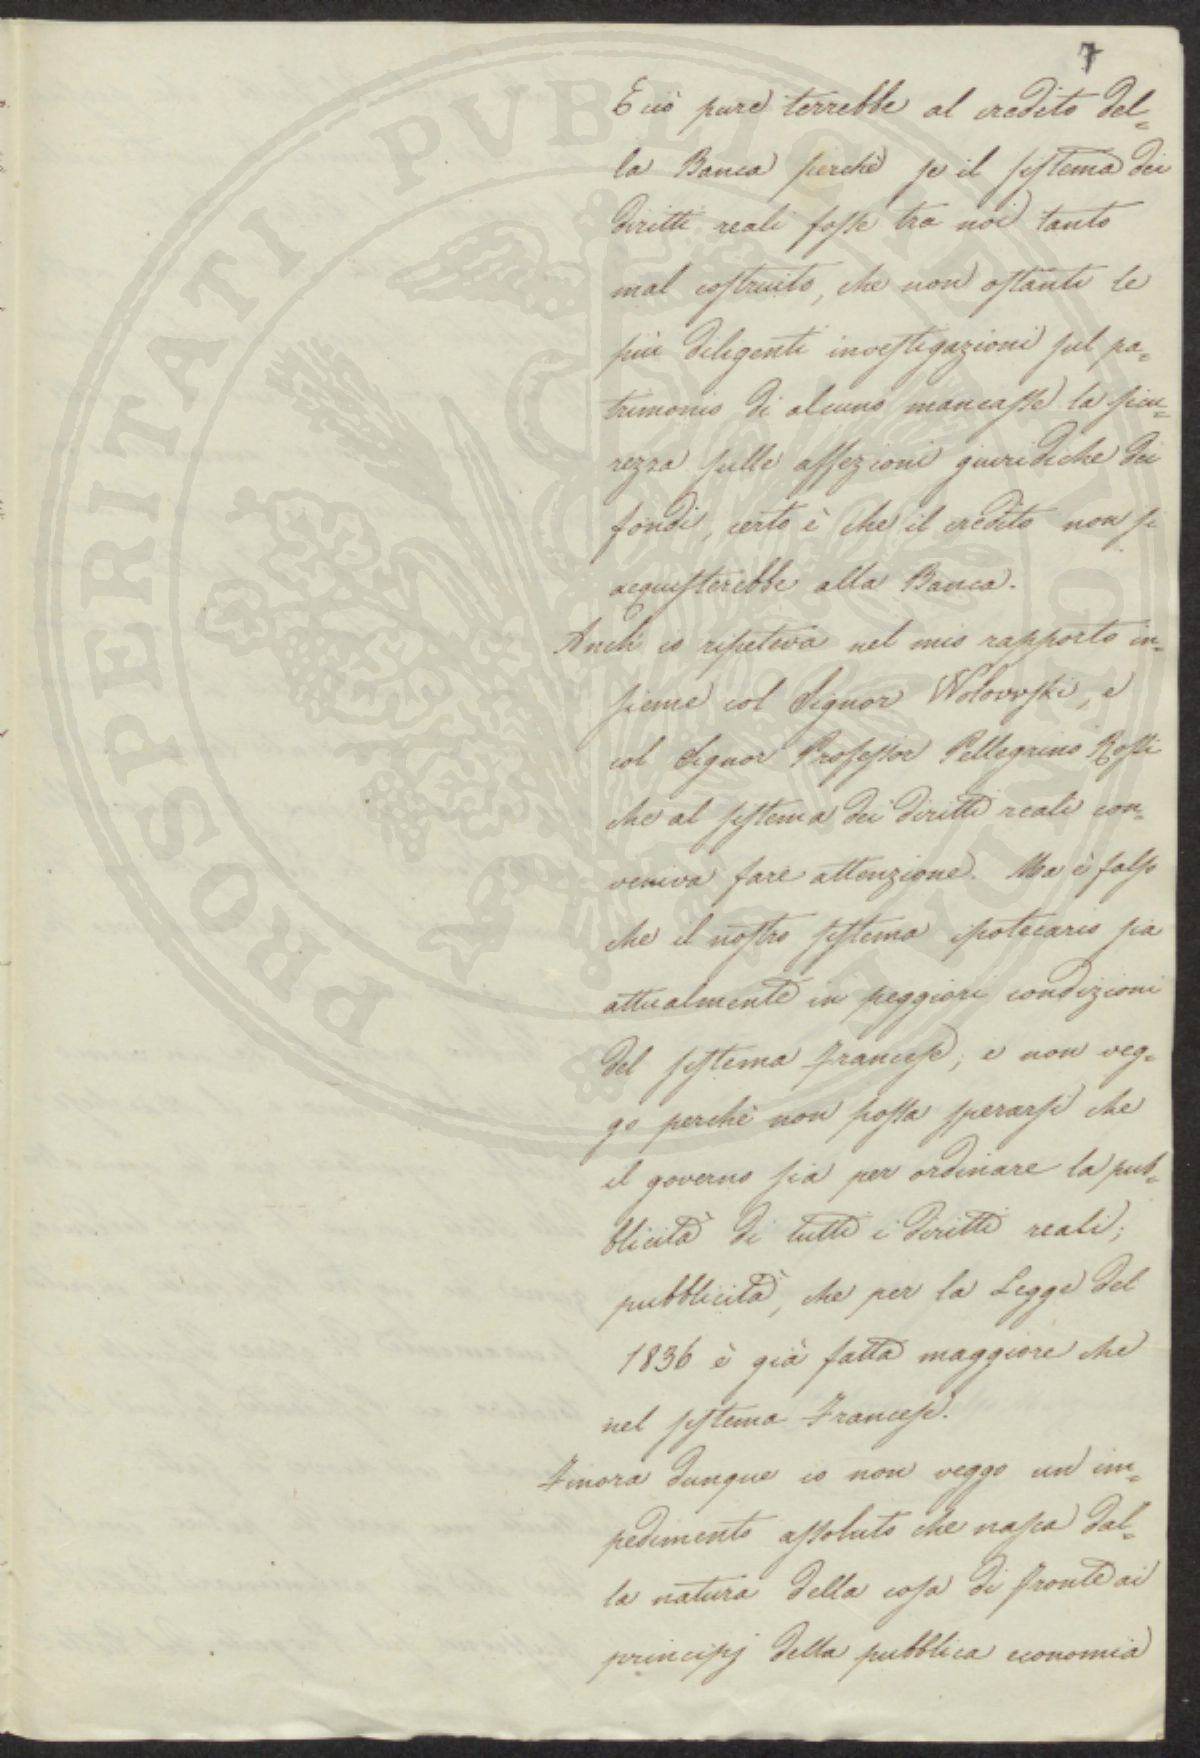 7
E ciò pure terrebbe al credito del=
la Banca perchè se il sistema dei
diritti reali fosse tra noi tanto
mal costruito, che non ostanti le
più diligenti investigazioni sul pa=
trimonio di alcuno mancasse la sicu=
rezza sulle affezioni giuridiche dei
fondi, certo è che il credito non si
acquisterebbe alla Banca.
Anch' io ripeteva nel mio rapporto in=
sieme col Signor Wolowski, e
col Signor Professor Pellegrino Rossi
che al sistema dei diritti reali con=
veniva fare attenzione. Ma è falso
che il nostro sistema ipotecario sia
attualmente in peggiori condizioni
del sistema francese, e non veg=
go perchè non possa sperarsi che
il governo sia per ordinare la pub=
blicità di tutti i diritti reali;
pubblicità, che per la Legge del
1836 è già fatta maggiore che
nel sistema Francese.
Finora dunque io non veggo un im=
pedimento assoluto che nasca dal=
la natura della cosa di fronte ai
principj della pubblica economia
PROSPERITATI PVBLICAE